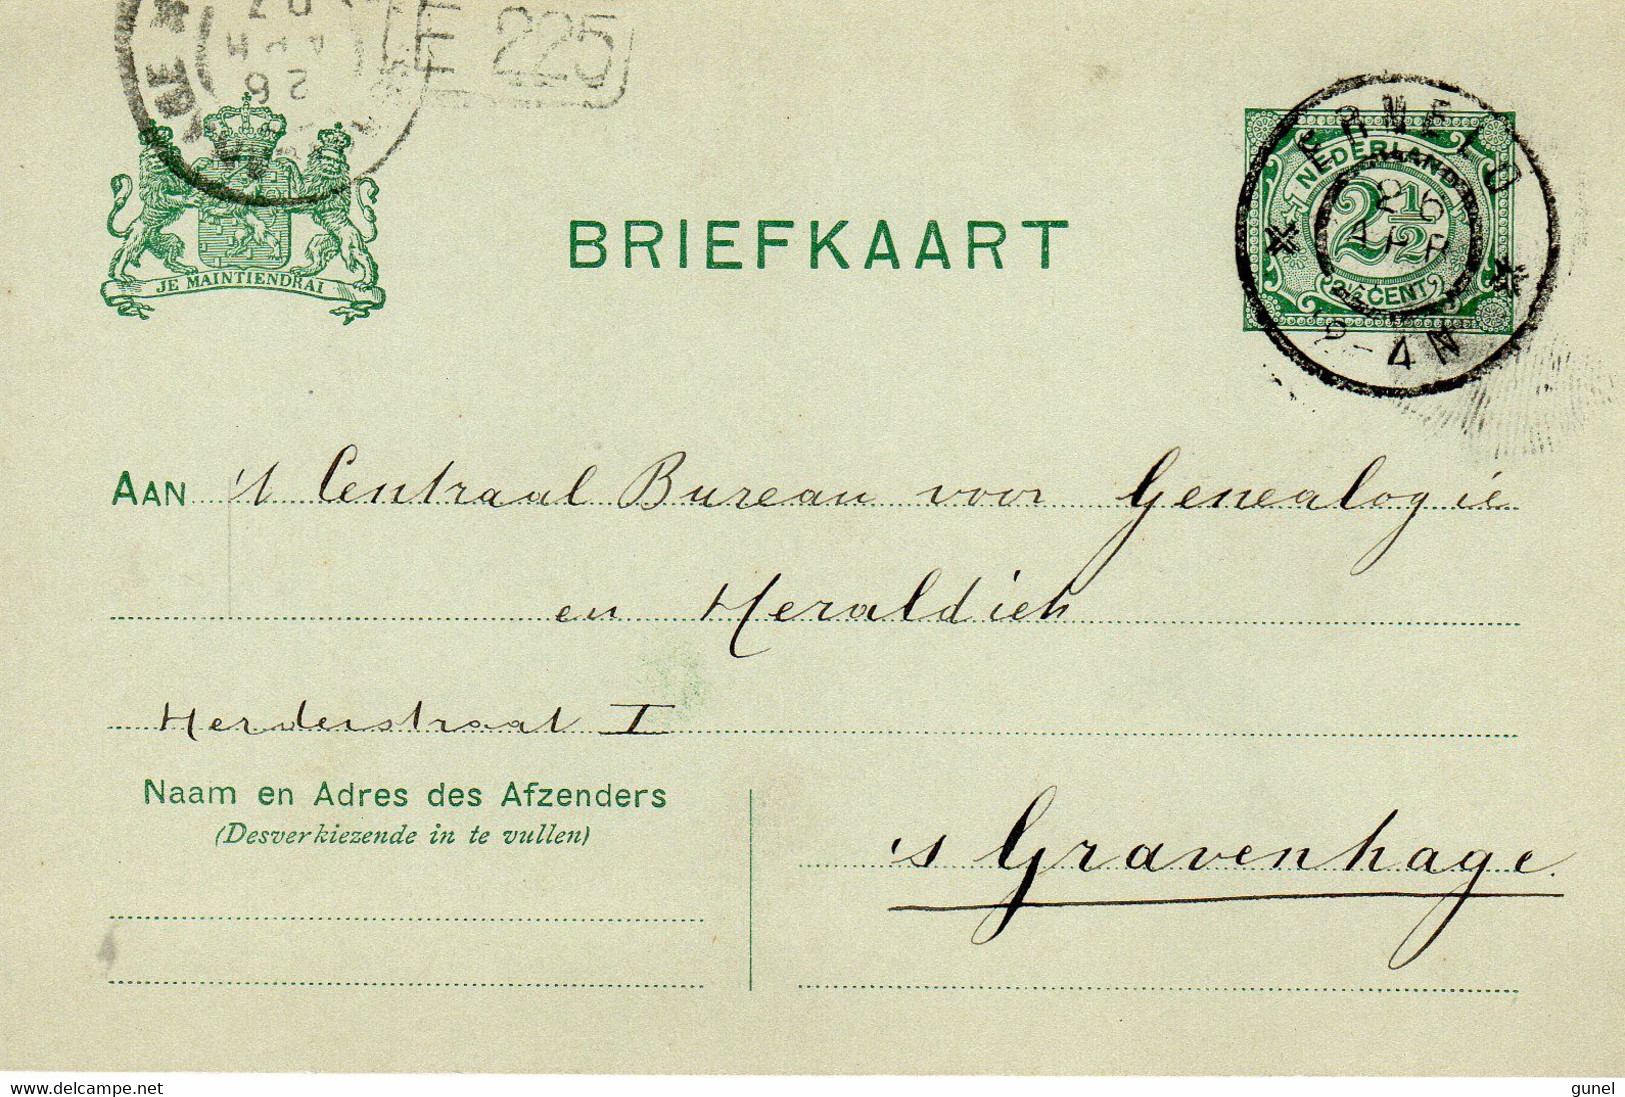 26
APR
E 225
JE MAINTIENDRAI
BRIEFKAART
ERMELO
NEDERLAND
2½
2½ CENT
26
APR
9-4N
AAN 't Centraal Bureau voor Genealogie
en Heraldiek
Herderstraat I
Naam en Adres des Afzenders
(Desverkiezende in te vullen)
's Gravenhage.
www.delcampe.net
gunel